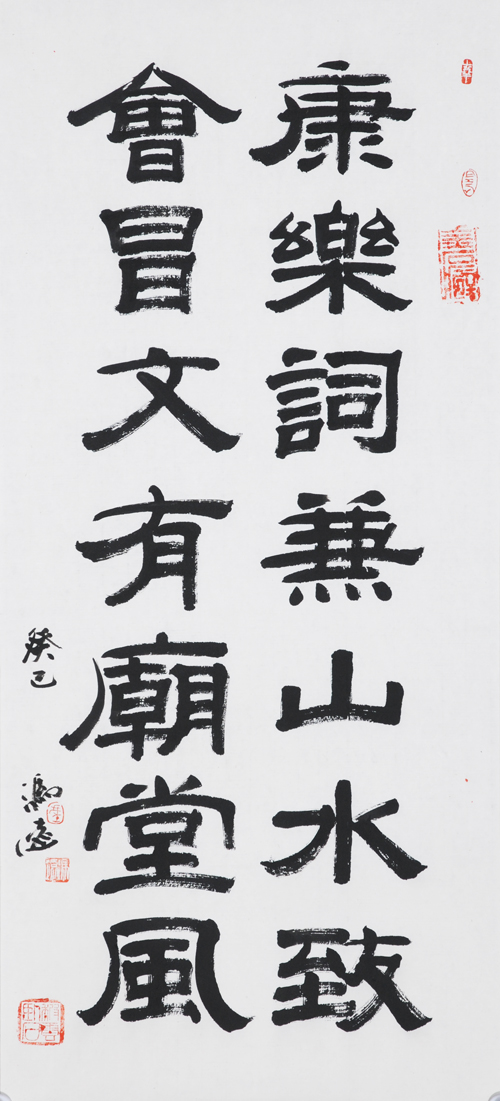 康樂詞兼山水致
會昌文有廟堂風
癸巳
馮遠